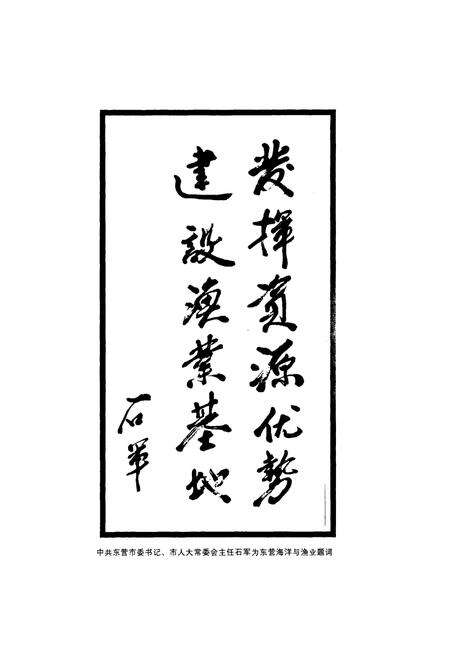 發揮資源优勢
建設漁業基地
石軍
中共东营市委书记、市人大常委会主任石军为东营海洋与渔业题词